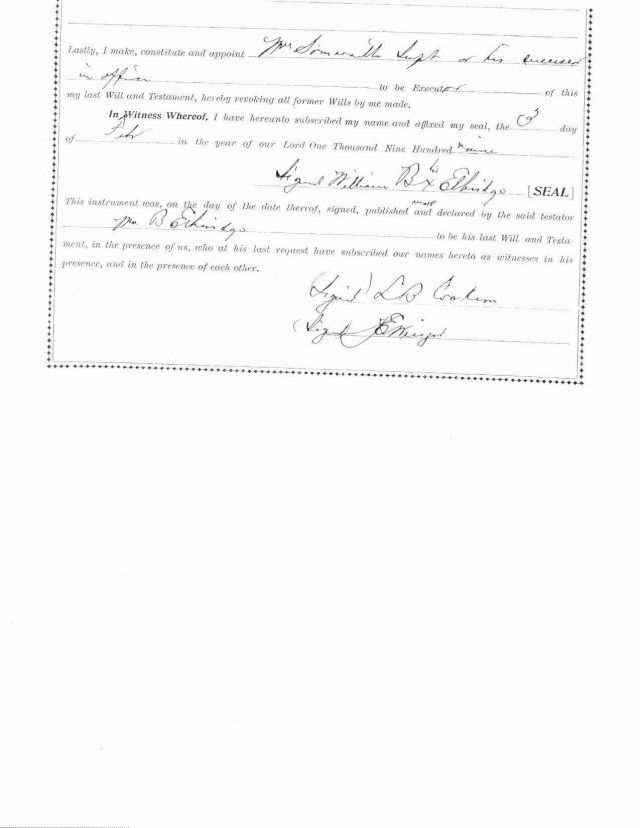 Lastly, I make, constitute and appoint Mr Somervill Supt or his successor
in office to be Executor of this
my last Will and Testament, hereby revoking all former Wills by me made.
In Witness Whereof, I have hereunto subscribed my name and affixed my seal, the 3 day
of Feb in the year of our Lord One Thousand Nine Hundred nine
Signed William B x Ethridge [SEAL]
This instrument was, on the day of the date thereof, signed, published and declared by the said testator
Wm B Ethridge to be his last Will and Testa-
ment, in the presence of us, who at his last request have subscribed our names hereto as witnesses in his
presence, and in the presence of each other.
(Signed) L B
(Signed) J E